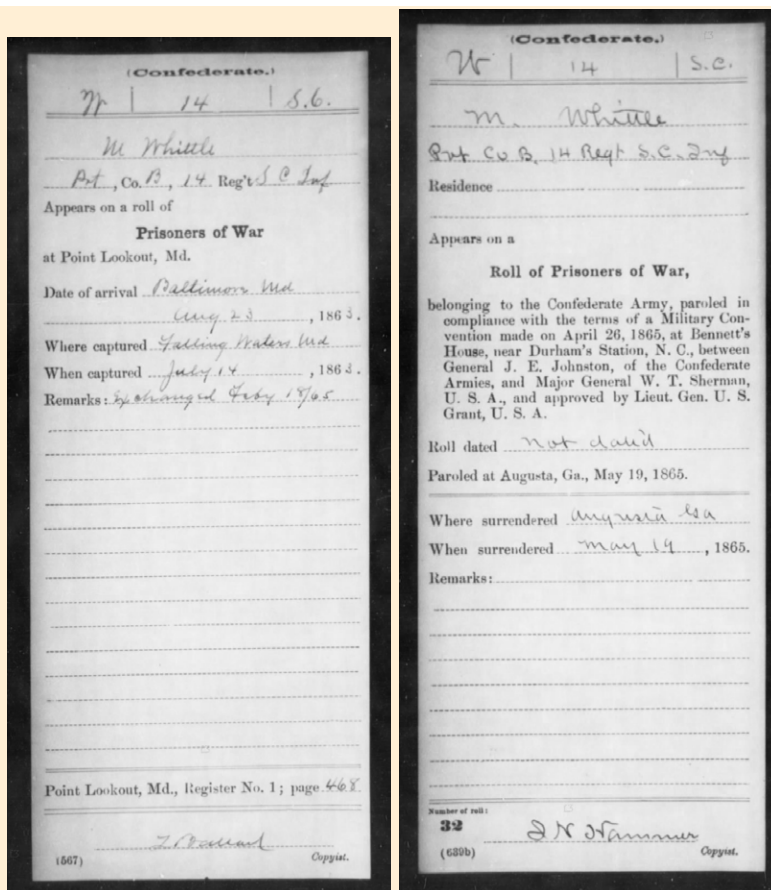 (Confederate.)
W | 14 | S.C.
M Whittle
Pvt, Co. B, 14 Reg't S C Inf
Appears on a roll of
Prisoners of War
at Point Lookout, Md.
Date of arrival Baltimore Md
Aug 23, 1863.
Where captured Falling Waters Md
When captured July 14, 1863.
Remarks: Exchanged Feby 18/65
Point Lookout, Md., Register No. 1; page 468
(567) Copyist.
(Confederate.)
W | 14 | S.C.
M. Whittle
Pvt Co B, 14 Regt S.C. Inf
Residence
Appears on a
Roll of Prisoners of War,
belonging to the Confederate Army, paroled in
compliance with the terms of a Military Con-
vention made on April 26, 1865, at Bennett's
House, near Durham's Station, N. C., between
General J. E. Johnston, of the Confederate
Armies, and Major General W. T. Sherman,
U. S. A., and approved by Lieut. Gen. U. S.
Grant, U. S. A.
Roll dated not dated
Paroled at Augusta, Ga., May 19, 1865.
Where surrendered Augusta Ga
When surrendered May 19, 1865.
Remarks:
Number of roll:
32
Hammer
(639b) Copyist.